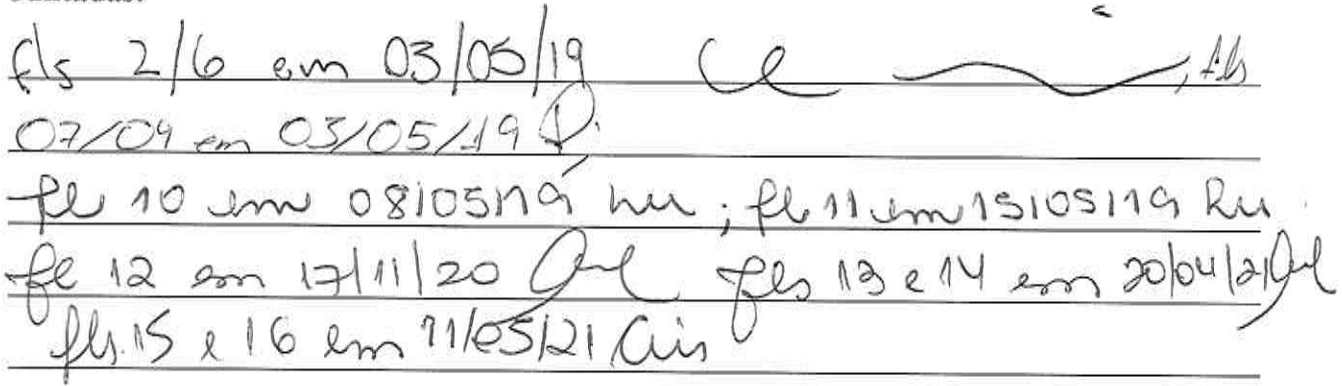 fls 2/6 em 03/05/19 , fls
07/09 em 03/05/19
fl 10 em 08/05/19 ; fl 11 em 15/05/19
fl 12 em 17/11/20 fls 13 e 14 em 20/04/21
fls. 15 e 16 em 11/05/21